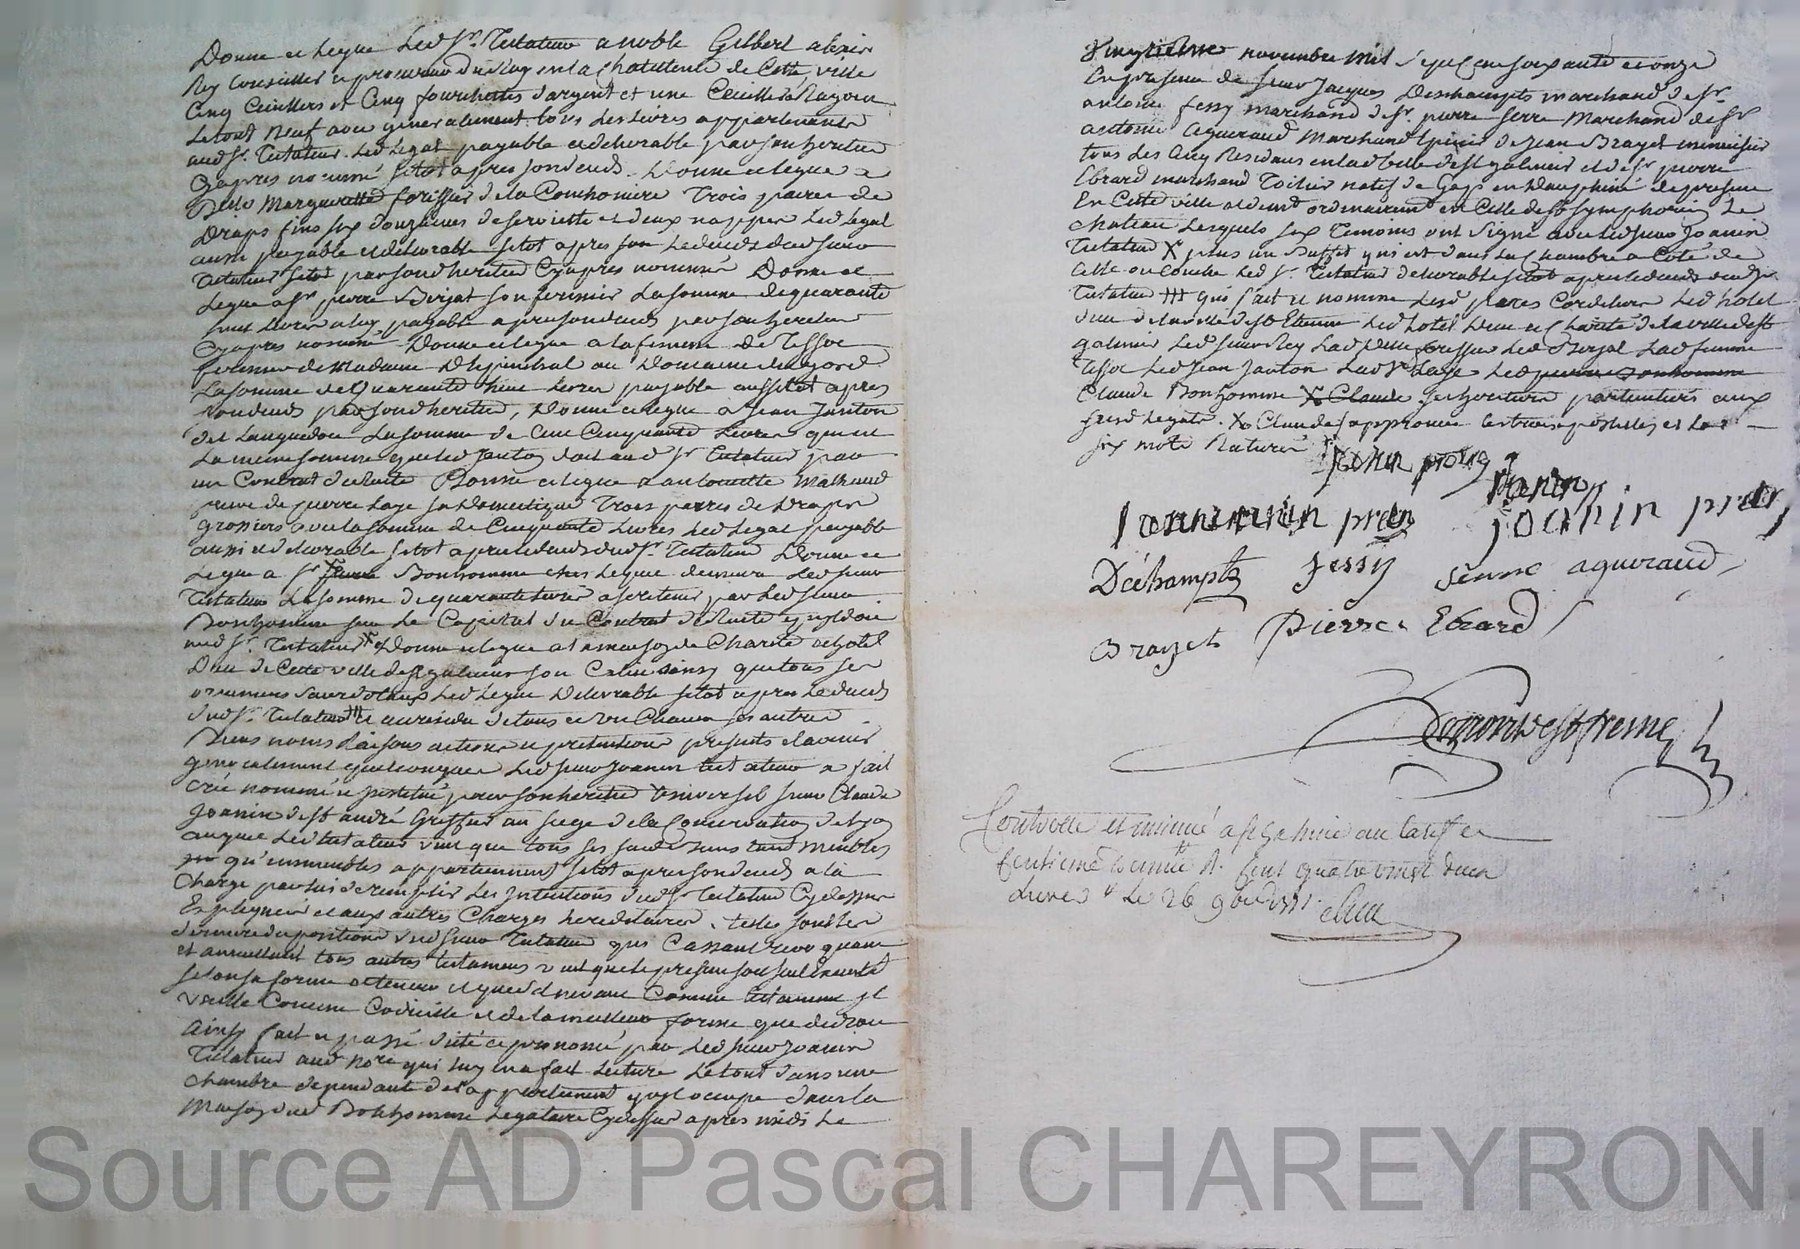 Donne et legue Led Sr. Testateur a noble Gilbert alexis
Rey Conseiller et procureur du Roy en la Chatellenie de Cette ville
Cinq Cuillers et Cinq fourchettes d'argent et une Cuillere a Ragout
Le tout neuf avec generalement tous Les Livres appartenants
aud Sr. Testateur. Led Legat payable et delivrable par son heritier
Cyapres nommé sitot apres son deceds. Donne et legue a
Delle Margueritte forissier de la Combonière Trois paires de
Draps fins six douzaines de serviette et deux nappes Led Legat
aussi payable et delivrable sitot apres son Le deceds dud sieur
Testateur sitot par sond heritier Cyapres nommé Donne et
Legue a Sr. pierre Berjat son fermier La somme de quarante
huit Livres payable apres son deceds par son heritier
Cyapres nommé Donne et legue a la femme de Tissot
fermier de Madame D'Epinchal au Domaine
La somme de Quarante huit Livres payable aussitot apres
son deceds par sond heritier, Donne et legue a Jean Janton
de Languedoc La somme de Cent Cinquante Livres qui est
La meme somme que led Janton doit aud Sr Testateur par
un Contrat de Rente Donne et legue a antoinette Mathaud
veuve de pierre Laye sa domestique Trois paires de Draps
grossiers avec la somme de Cinquante Livres Led Legat payable
aussi et delivrable sitot apres le deceds dud Sr. Testateur Donne et
Legue a Sr pierre Bonhomme chez Lequel demeure Led sieur
Testateur La somme de quarante Livres a retenir par Led sieur
Bonhomme sur Le Capital du Contrat de Rente qu'il doit
aud Sr. Testateur X Donne et legue a la maison de Charité et hotel
Dieu de Cette ville de St galmier son Calice ainsy que tous ses
ornemens sacerdotaux Led Legat Delivrable sitot apres Le deceds
dud Sr. Testateur ††† et au residu de tous et un Chacun ses autres
Biens noms Raisons actions et pretentions presents et avenir
generalement quelconques Led sieur Joanin testateur a fait
créé nommé et institué pour son heritier universel sieur Claude
Joanin de St andré Greffier au siege de la Conservation de Lyon
auquel Led testateur veut que tous ses susd biens tant meubles
qu'immeubles appartiennent sitot apres son deceds a la
Charge par lui de remplir Les intentions dud Sr Testateur Cydessus
Expliquées et aux autres Charges hereditaires. telles sont Les
dernieres dispositions dud sieur Testateur qui Cassant revoquant
et annullant tous autres testamens veut que le present soit seul Executé
selon sa forme et teneur et que s'il ne vaut Comme testament il
vaille Comme Codicille et de la meilleure forme que de droit
Ainsy fait et passé dicté et prononcé par Led sieur Joanin
Testateur aud Nore qui luy en a fait Lecture Le tout dans une
chambre dependante de l'appartement qu'il occupe dans la
Maison dud Bonhomme Legataire Cydessus apres midi Le
novembre mil sept cens soixante et onze
En presence de sieur Jacques Deschampts marchand de Sr.
antoine fessy marchand de Sr. pierre serre Marchand de Sr
antoine Agueraud Marchand Epicier de Jean Brayet menuisier
tous Les Cinq Residans en lad ville de St galmier et de Sr. pierre
Ebrard marchand Toilier natif de Gap en Dauphiné de present
En Cette ville et demt ordinairement en Celle de St Symphorien Le
chateau Lesquels six Temoins ont signé avec led sieur Joanin
Testateur X plus un Buffet qui est dans La Chambre a Coté de
Celle ou Couche Led Sr. Testateur delivrable sitot apres le deceds dud Sr
Testateur ††† qui fait et nomme Lesd peres Cordeliers Led hotel
Dieu de la ville de St Etienne Led hotel Dieu et Charité de la ville de St
galmier Led sieur Rey Lad Delle forissier Led Berjat Lad femme
Tissot Led Jean Janton Lad Ve Laye Led pierre Bonhomme
Claude Bonhomme X Claude ses heritiers particuliers aux
susd Legats. X Claude / approuvé Les trois apostilles et Les
six mots Raturés
Joanin pretre
Joanin pretre
Joanin pretre
Déchampts Fessy Serre agueraud
Brayet Pierre Ebrard
Controllé et insinué a St Galmier au tarif et
Centieme denier R. Cent quatre vingt deux
Livres Le 26 9bre 1771.